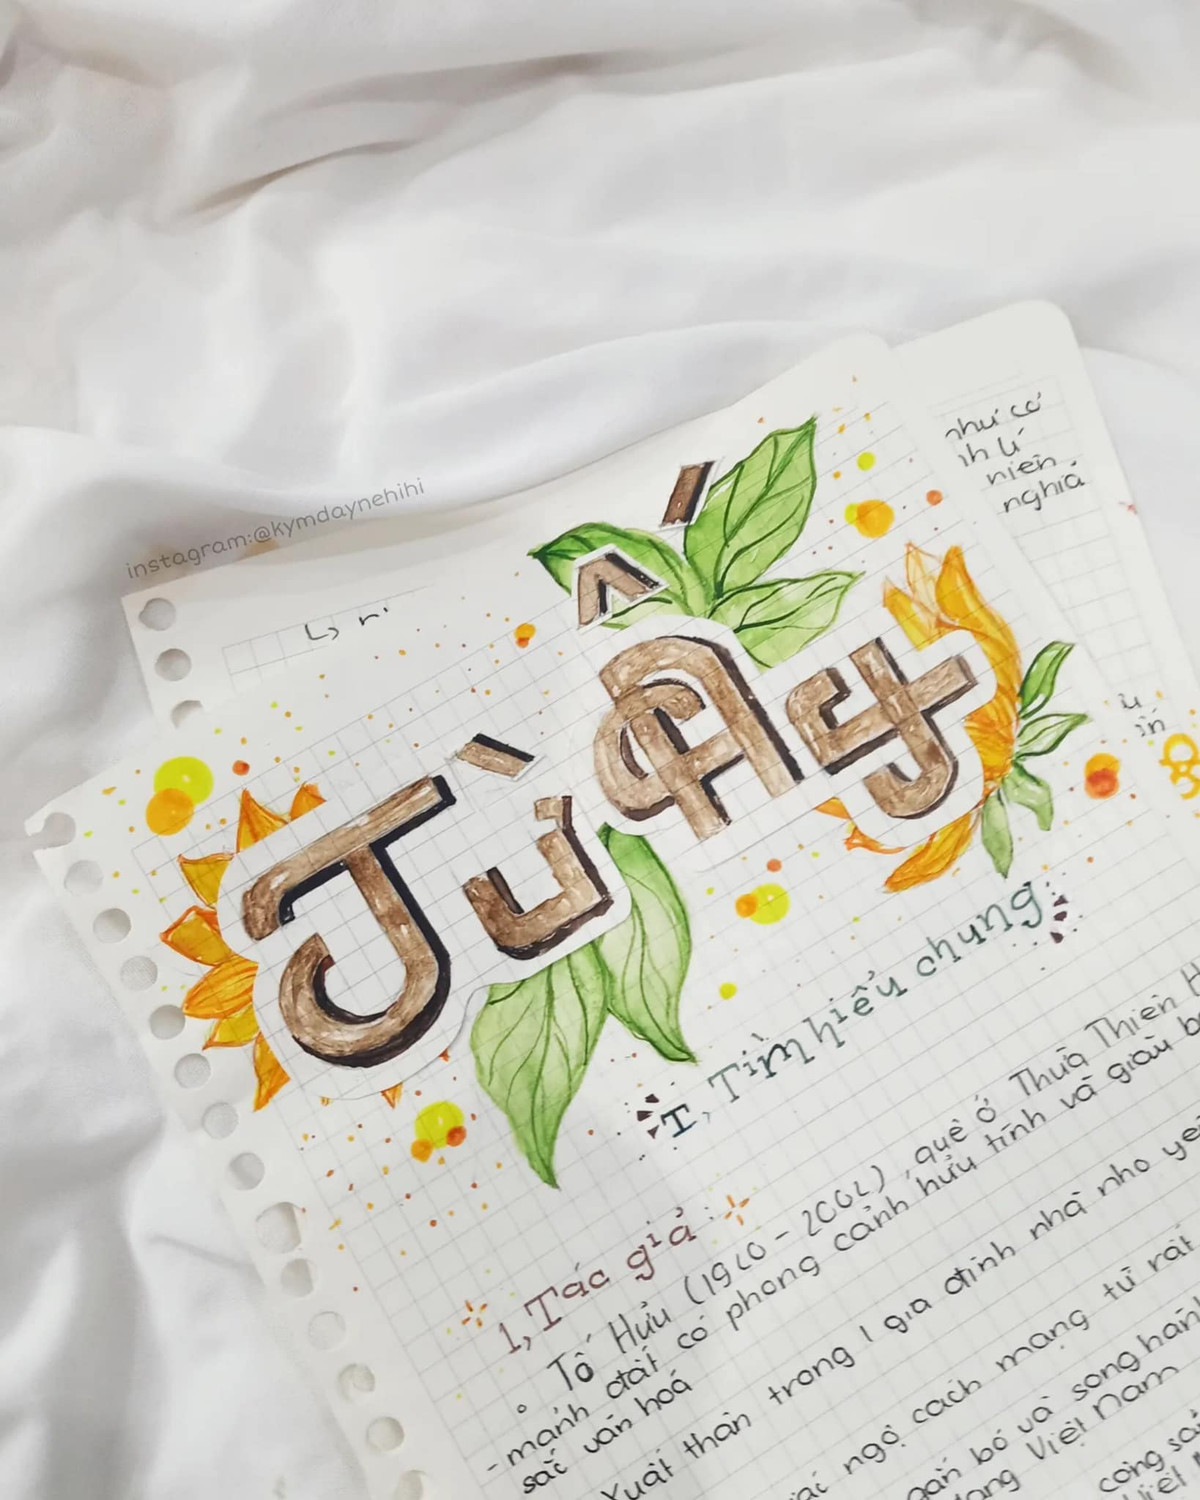 như cơ
lí
niên
nghĩa
instagram:@kymdaynehihi
Từ Ấy
I, Tìm hiểu chung
1, Tác giả:
Tố Hữu (1920 - 2002), quê ở Thừa Thiên
- mảnh đất có phong cảnh hữu tình và giàu
sắc văn hoá
Xuất thân trong 1 gia đình nhà nho
ngộ cách mạng từ rất
gắn bó và song hành
Việt Nam
công